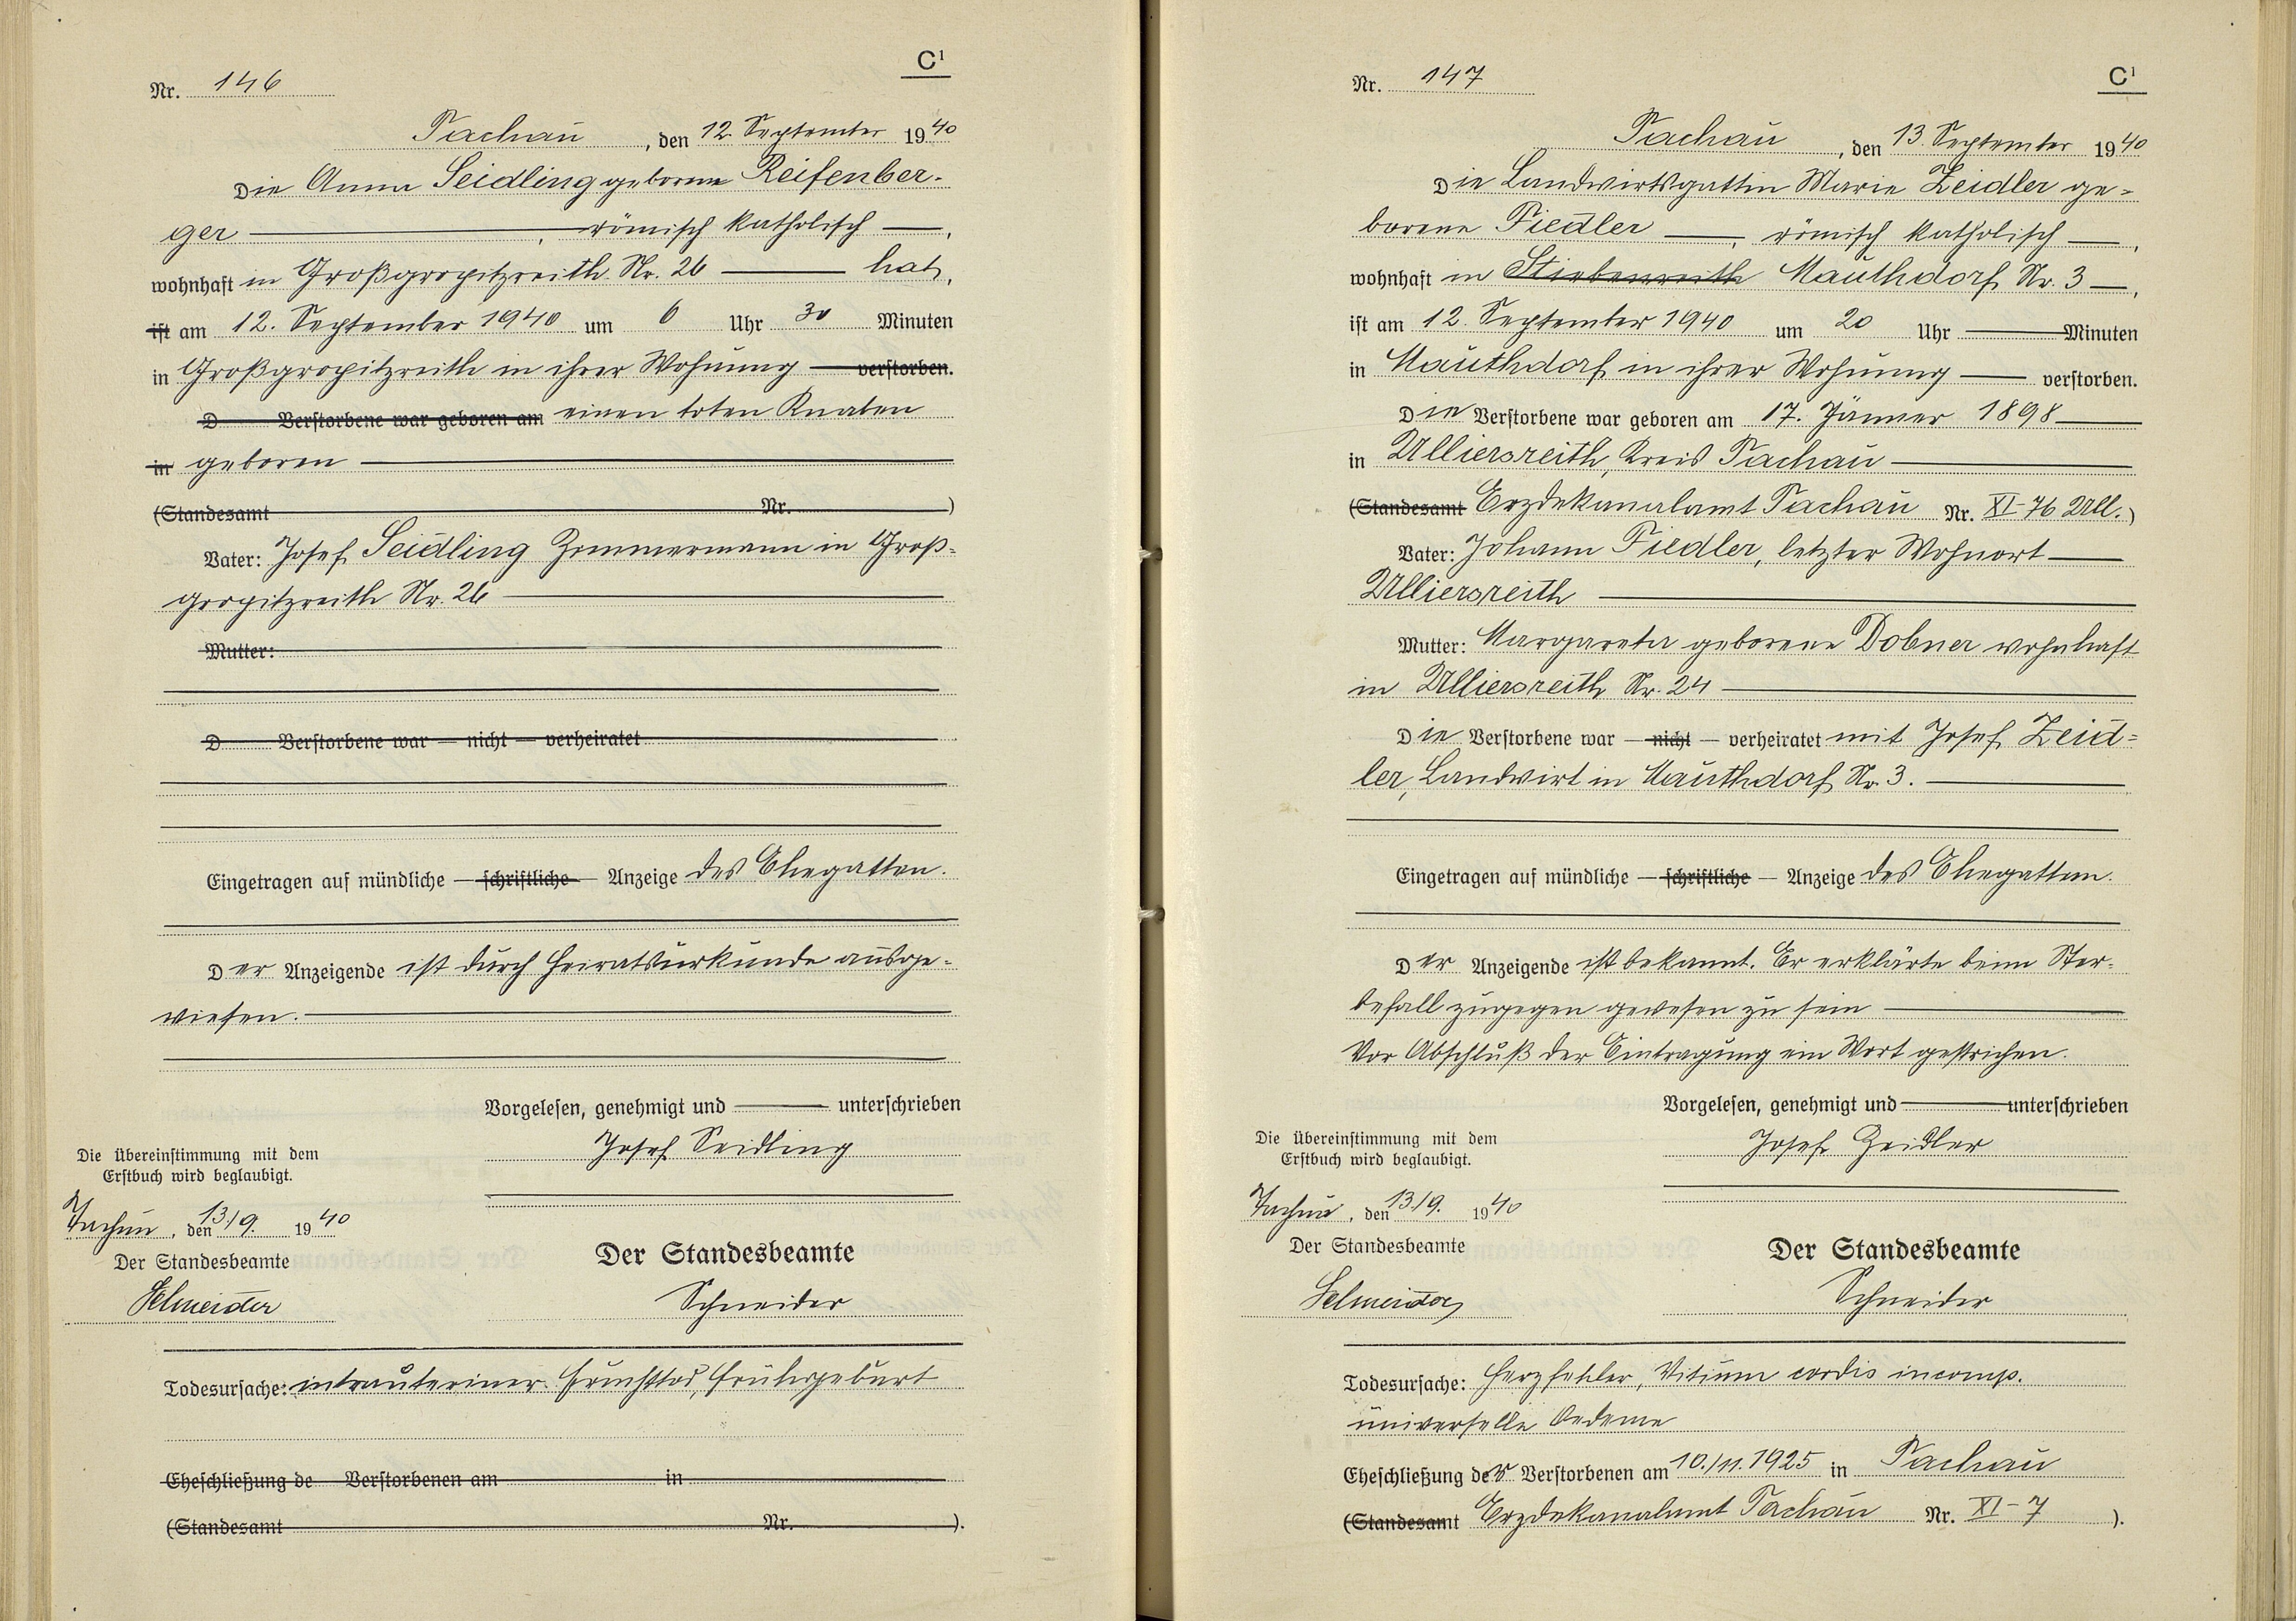 C¹
Nr. 146
Tachau, den 12. September 1940
Die Anna Seidling geborene Reifenber-
ger, römisch katholisch,
wohnhaft in Großgropitzreith Nr. 26 hat,
ist am 12. September 1940 um 6 Uhr 30 Minuten
in Großgropitzreith in ihrer Wohnung verstorben.
D Verstorbene war geboren am einen toten Knaben
in geboren
(Standesamt Nr. )
Vater: Josef Seidling Zimmermann in Groß-
gropitzreith Nr. 26
Mutter:
D Verstorbene war — nicht — verheiratet
Eingetragen auf mündliche — schriftliche — Anzeige des Ehegatten.
Der Anzeigende ist durch Heiratsurkunde ausge-
wiesen.
Vorgelesen, genehmigt und unterschrieben
Josef Seidling
Die Übereinstimmung mit dem
Erstbuch wird beglaubigt.
Tachau, den 13/9. 1940
Der Standesbeamte
Schneider
Der Standesbeamte
Schneider
Todesursache: intrauteriner Fruchttod, Frühgeburt
Eheschließung de Verstorbenen am in
(Standesamt Nr. ).
C¹
Nr. 147
Tachau, den 13. September 1940
Die Landwirtsgattin Marie Zeidler ge-
borene Fiedler, römisch katholisch,
wohnhaft in Stiebenreith Mauthdorf Nr. 3,
ist am 12. September 1940 um 20 Uhr Minuten
in Mauthdorf in ihrer Wohnung verstorben.
Die Verstorbene war geboren am 17. Jänner 1898
in Ulliersreith, Kreis Tachau
(Standesamt Erzdekanalamt Tachau Nr. XI-76 Ull.)
Vater: Johann Fiedler, letzter Wohnort
Ulliersreith
Mutter: Margareta geborene Dobner wohnhaft
in Ulliersreith Nr. 24
Die Verstorbene war — nicht — verheiratet mit Josef Zeid-
ler, Landwirt in Mauthdorf Nr. 3.
Eingetragen auf mündliche — schriftliche — Anzeige des Ehegatten.
Der Anzeigende ist bekannt. Er erklärte beim Ster-
befall zugegen gewesen zu sein
Vor Abschluß der Eintragung ein Wort gestrichen.
Vorgelesen, genehmigt und unterschrieben
Josef Zeidler
Die Übereinstimmung mit dem
Erstbuch wird beglaubigt.
Tachau, den 13/9. 1940
Der Standesbeamte
Schneider
Der Standesbeamte
Schneider
Todesursache: Herzfehler, Vitium cordis incomp.
universelle Oedeme
Eheschließung der Verstorbenen am 10./11. 1925 in Tachau
(Standesamt Erzdekanalamt Tachau Nr. XI-7 ).